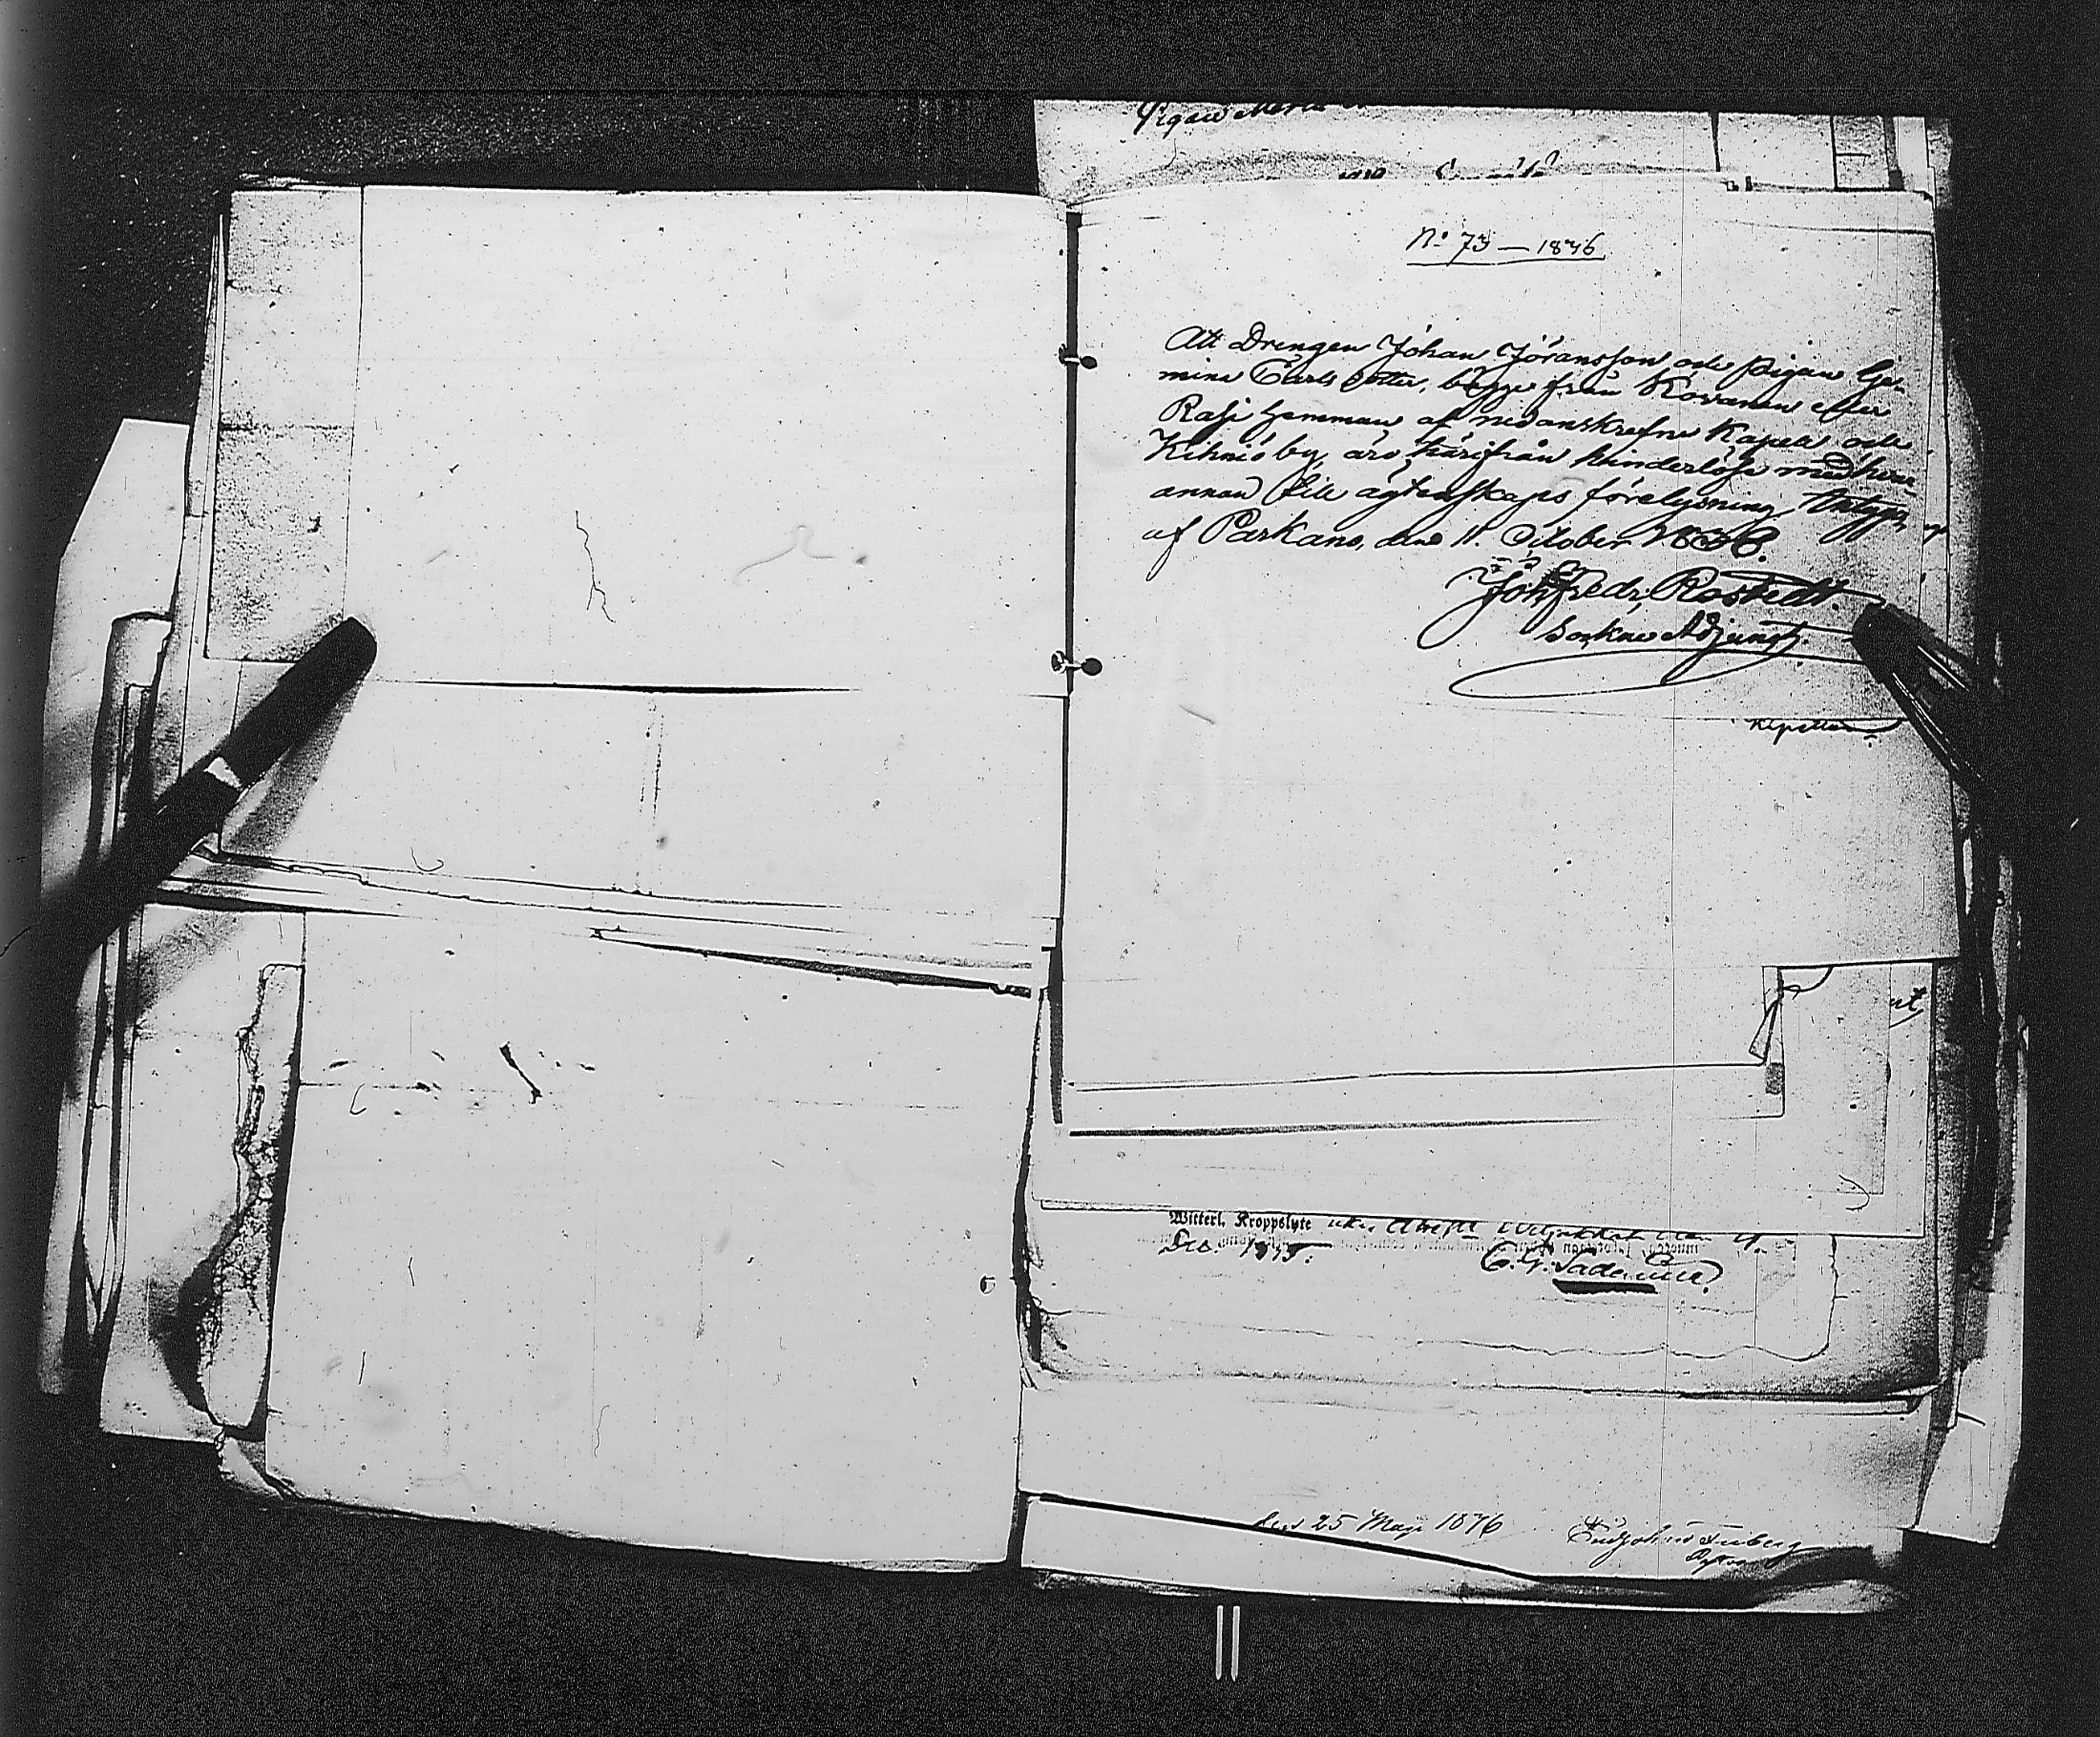 Pigan Maria
No 73 — 1876
Att Drengen Johan Jöransson och pigan Ge-
mina Carls dotter, begge från Kovanen eller
Rasi hemman af nedanskrefne Kapell och
Kihniö by, äro härifrån hinderlösa med hvar-
annan till ägtenskaps förelysning, Antyges,
af Parkano, den 11. October
Joh Fredr. Rostedt.
Sockne Adjunct.
Kapellan
Witterl. Kroppslyte
Dec. 1875.
den 25 Maji 1876